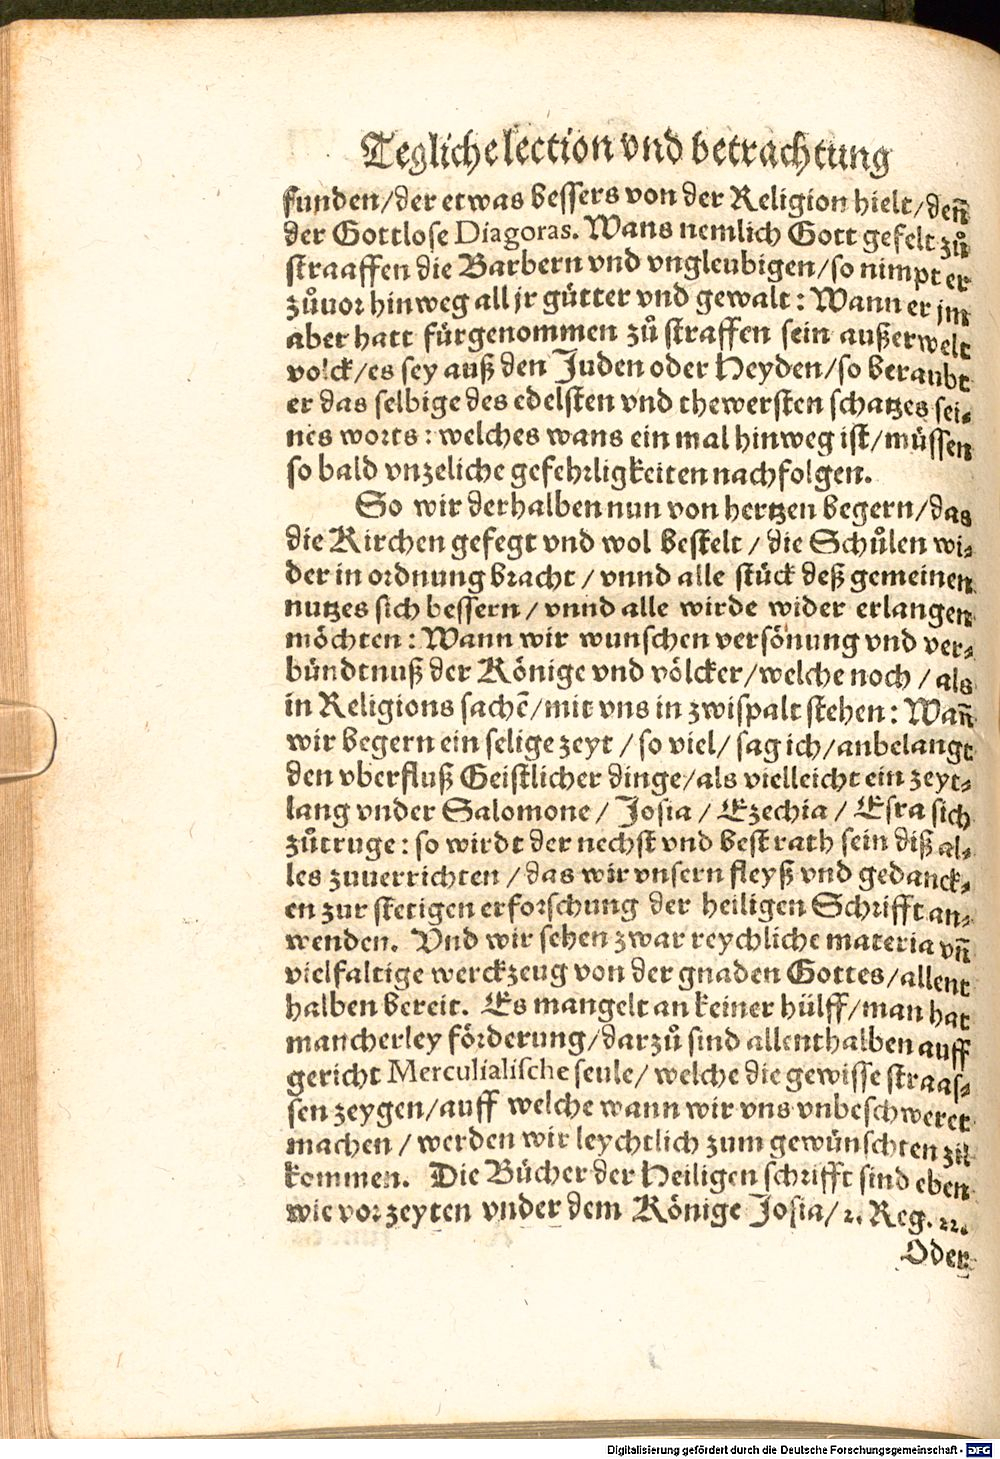 Tegliche lection vnd betrachtung
funden/der etwas bessers von der Religion hielt/deñ
der Gottlose Diagoras. Wans nemlich Gott gefelt zů
straaffen die Barbern vnd vngleubigen/so nimpt er
zůuor hinweg all jr gütter vnd gewalt: Wann er jm
aber hatt fürgenommen zů straffen sein außerwelt
volck/es sey auß den Juden oder Heyden/so beraubt
er das selbige des edelsten vnd thewersten schatzes sei-
nes worts: welches wans ein mal hinweg ist/müssen
so bald vnzeliche gefehrligkeiten nachfolgen.
So wir derhalben nun von hertzen begern/das
die Kirchen gefegt vnd wol bestelt/die Schůlen wi-
der in ordnung bracht/vnnd alle stück deß gemeinen
nutzes sich bessern/vnnd alle wirde wider erlangen
möchten: Wann wir wunschen versönung vnd ver-
bündtnuß der Könige vnd völcker/welche noch/als
in Religions sachē/mit vns in zwispalt stehen: Wañ
wir begern ein selige zeyt/so viel/sag ich/anbelangt
den vberfluß Geistlicher dinge/als vielleicht ein zeyt-
lang vnder Salomone/Josia/Ezechia/Esra sich
zůtruge: so wirdt der nechst vnd best rath sein diß al-
les zuuerrichten/das wir vnsern fleyß vnd gedanck-
en zur stetigen erforschung der heiligen Schrifft an-
wenden. Vnd wir sehen zwar reychliche materia vñ
vielfaltige werckzeug von der gnaden Gottes/allent
halben bereit. Es mangelt an keiner hülff/man hat
mancherley förderung/darzů sind allenthalben auff
gericht Merculialische seule/welche die gewisse straas-
sen zeygen/auff welche wann wir vns vnbeschweret
machen/werden wir leychtlich zum gewünschten zil
kommen. Die Bücher der Heiligen schrifft sind eben
wie vor zeyten vnder dem Könige Josia/2. Reg. 22.
Oder
Digitalisierung gefördert durch die Deutsche Forschungsgemeinschaft - DFG